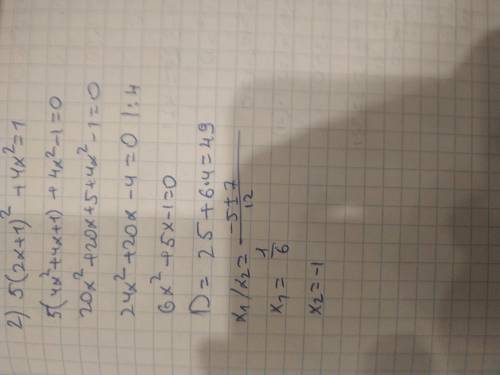 2) 5(2x+1)² + 4x² = 1
5(4x²+4x+1) + 4x² - 1 = 0
20x² + 20x + 5 + 4x² - 1 = 0
24x² + 20x - 4 = 0 |:4
6x² + 5x - 1 = 0
D = 25 + 6·4 = 49
x₁/x₂ = (-5±7)/12
x₁ = 1/6
x₂ = -1